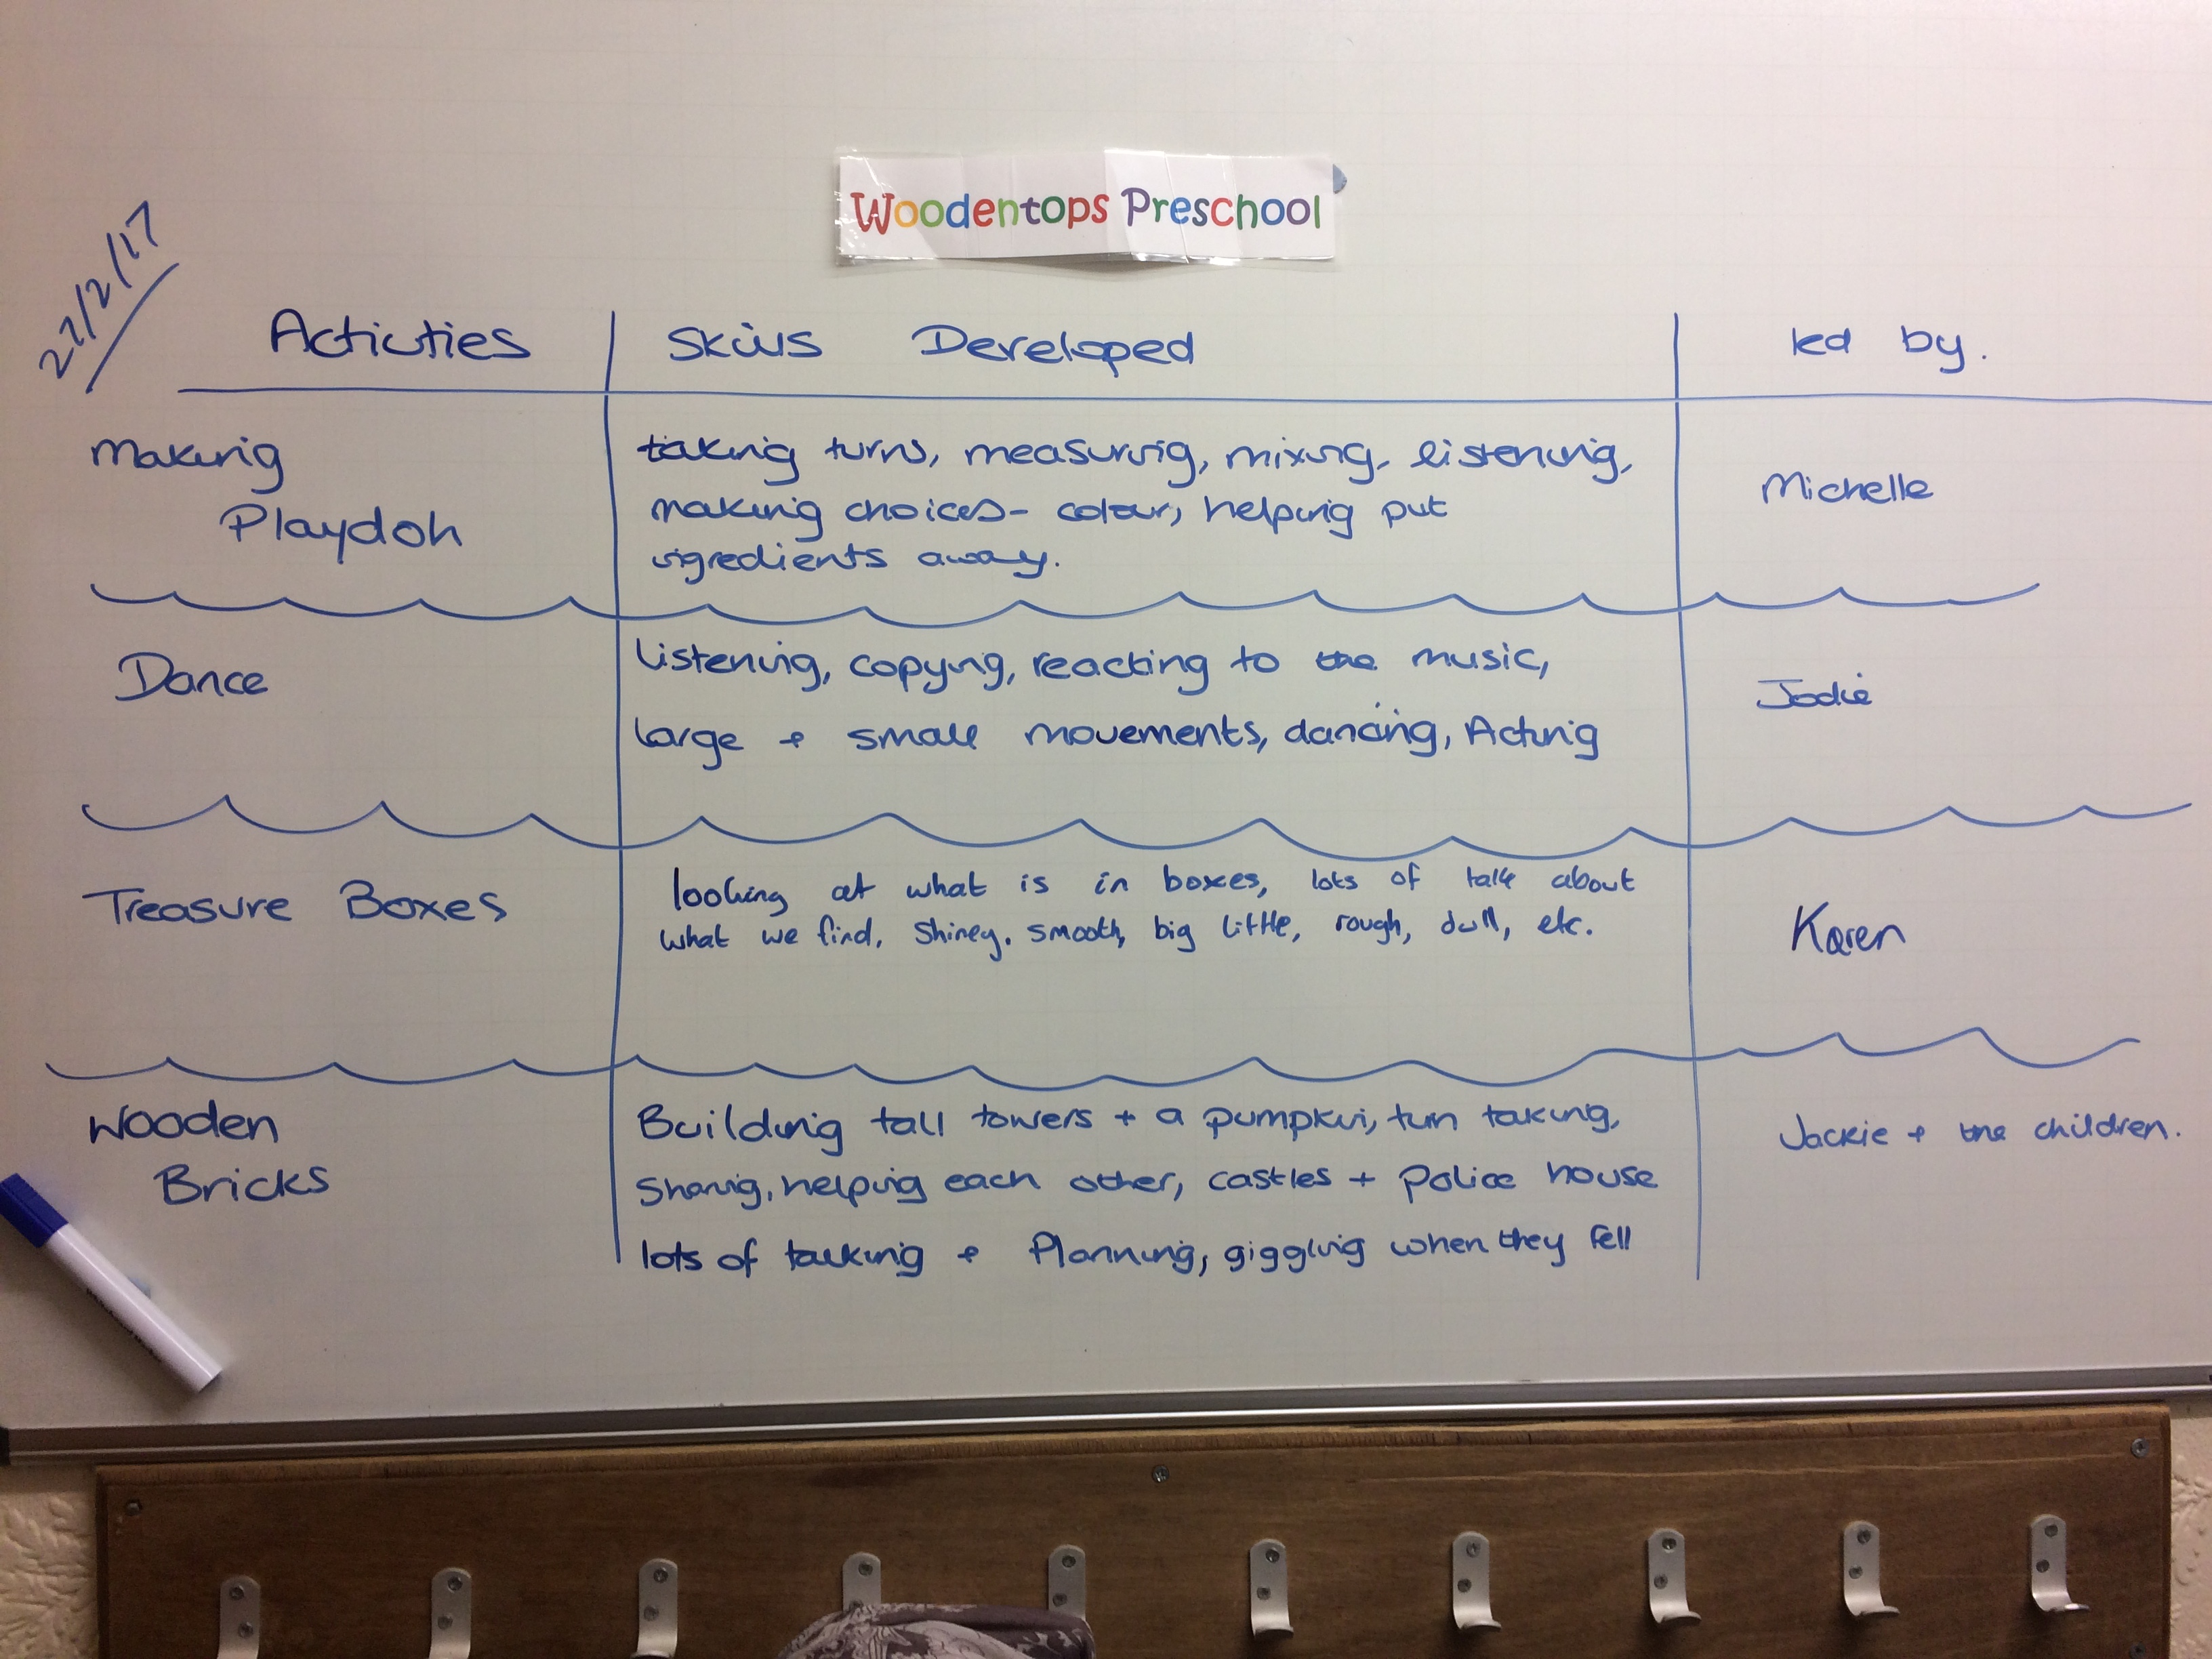 Woodentops Preschool
27/2/17
Activities Skills Developed led by.
Making
Playdoh
taking turns, measuring, mixing, listening,
making choices- colour, helping put
ingredients away.
Michelle
Dance
Listening, copying, reacting to the music,
large + small movements, dancing, Acting
Jodie
Treasure Boxes
looking at what is in boxes, lots of talk about
what we find, Shiney, smooth, big little, rough, dull, etc.
Karen
Wooden
Bricks
Building tall towers + a pumpkin, turn taking,
Sharing, helping each other, castles + Police house
lots of talking + Planning, giggling when they fell
Jackie + the children.